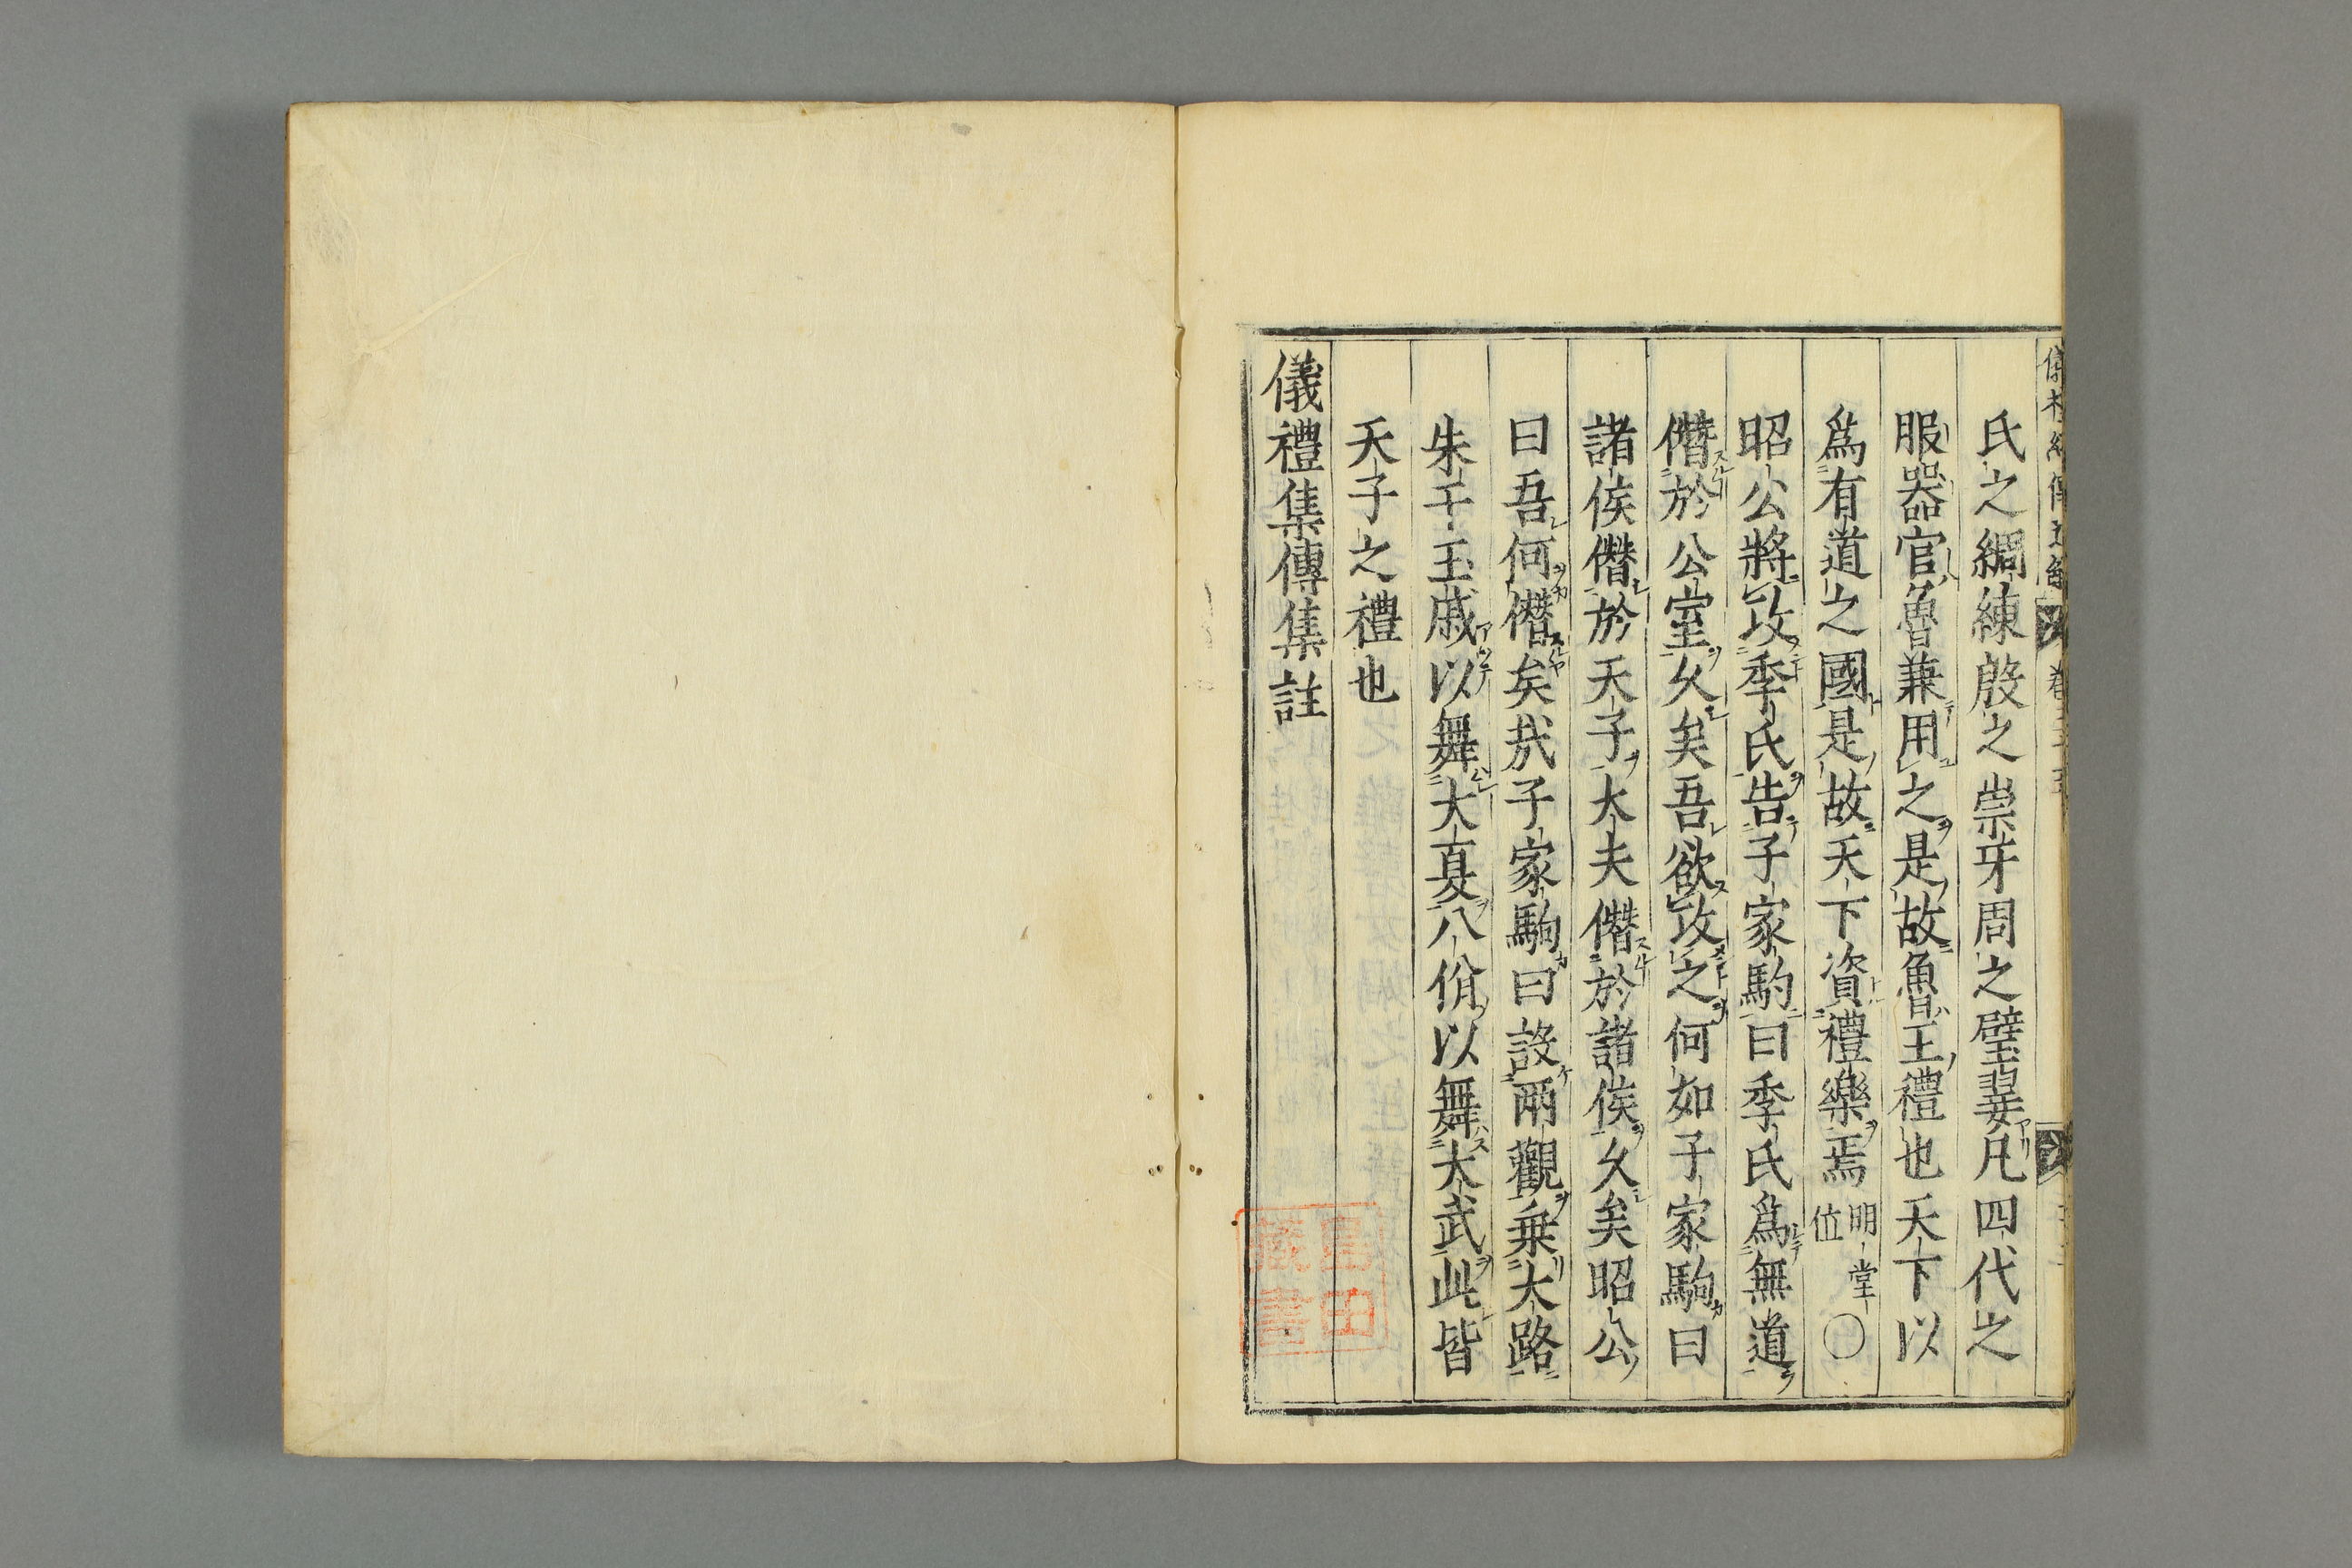 氏之綢練殷之崇牙周之璧翣凡四代之
服器官魯兼用之是故魯王禮也天下以
爲有道之國是故天下資禮樂焉明堂位○
昭公將攻季氏告子家駒曰季氏爲無道
僭於公室久矣吾欲攻之何如子家駒曰
諸侯僭於天子大夫僭於諸侯久矣昭公
曰吾何僭矣哉子家駒曰設兩觀乗大路
朱干玉戚以舞大夏八佾以舞大武此皆
天子之禮也
儀禮集傳集註